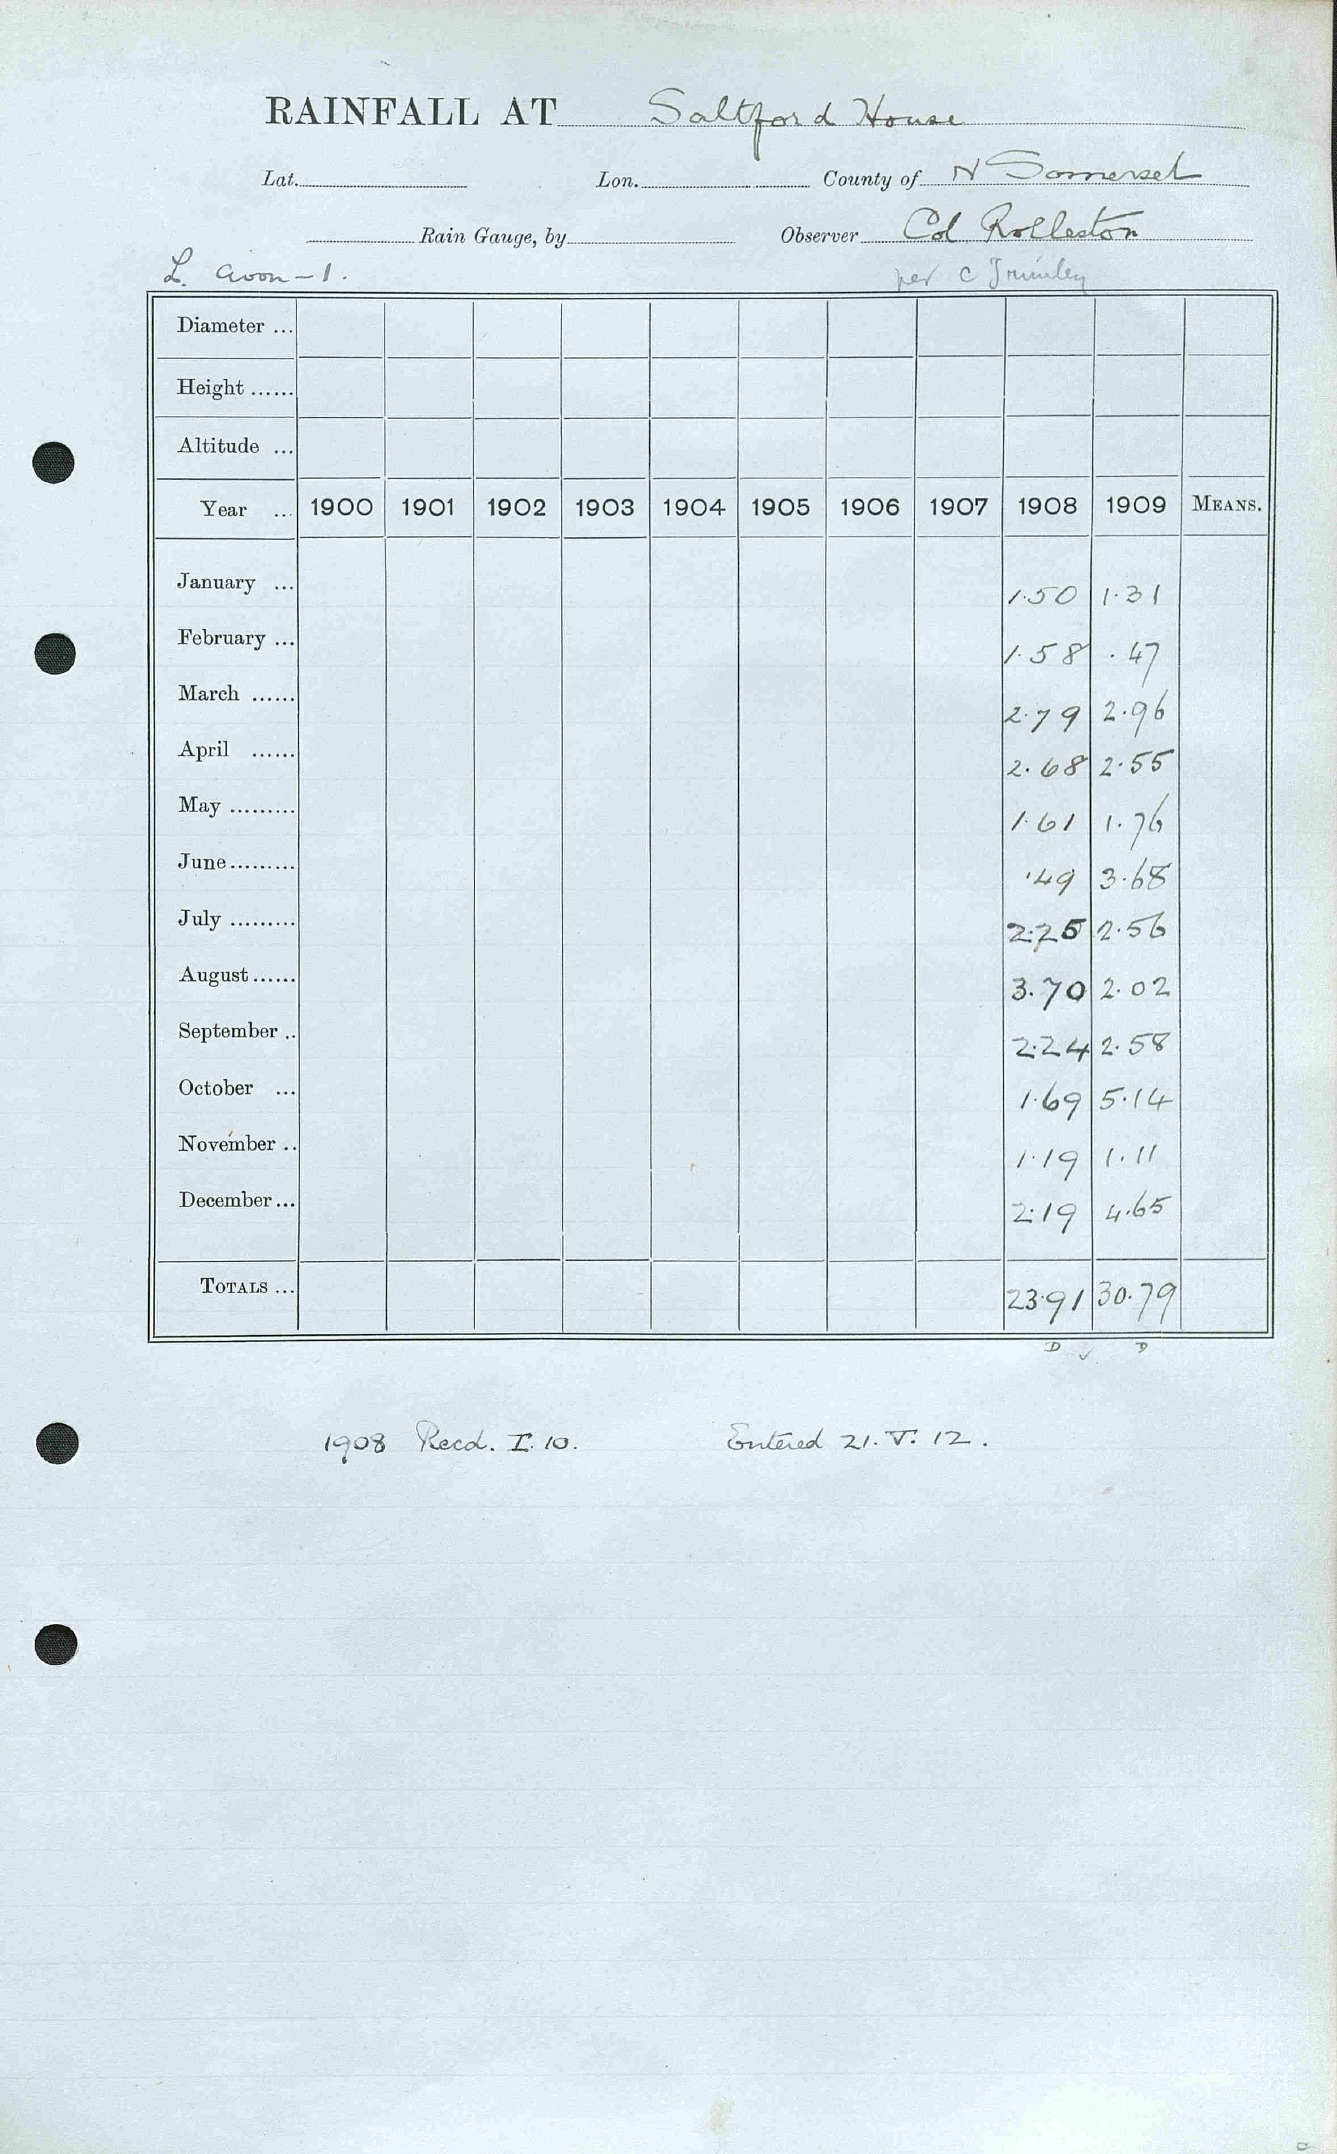 RAINFALL AT Saltford House
Lat. Lon. County of N Somerset
Rain Gauge, by Observer Col Rolleston
L. Avon - 1. per C
Diameter ...
Height ......
Altitude ...
Year ... 1900 1901 1902 1903 1904 1905 1906 1907 1908 1909 MEANS.
January ... 1.50 1.31
February ... 1.58 .47
March ...... 2.79 2.96
April ...... 2.68 2.55
May ......... 1.61 1.76
June......... .49 3.68
July ......... 2.25 2.56
August...... 3.70 2.02
September .. 2.24 2.58
October ... 1.69 5.14
November .. 1.19 1.11
December... 2.19 4.65
TOTALS ... 23.91 30.79
D ✓ D
1908 Recd. I. 10. Entered 21. V. 12.